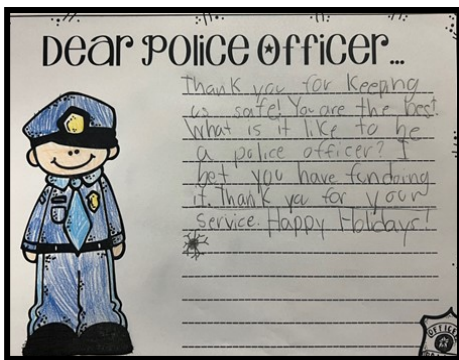 Dear Police Officer...
Thank you for keeping
us safe! You are the best.
What is it like to be
a police officer? I
bet you have fun doing
it. Thank you for your
service. Happy Holidays!
OFFICER